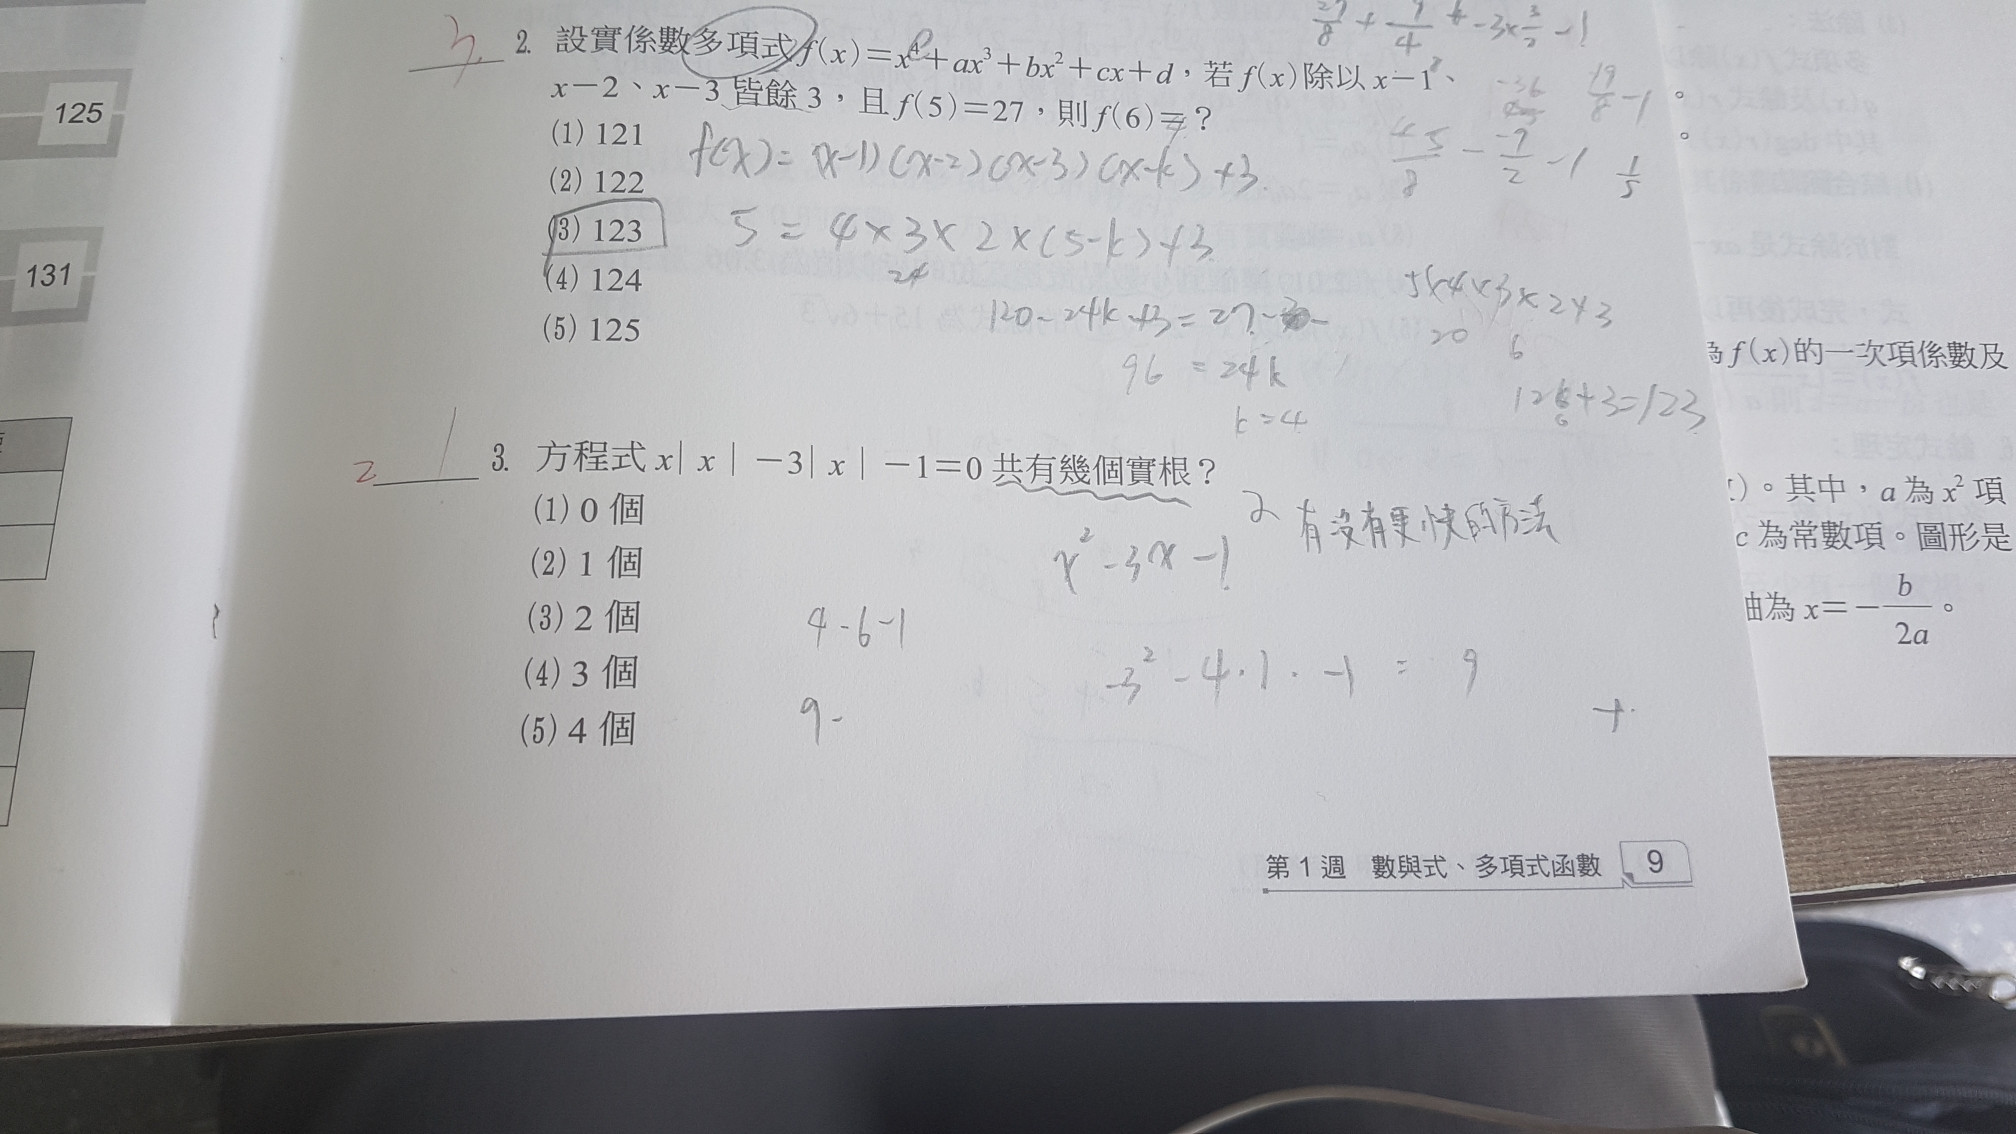 125
131
3
2. 設實係數多項式 f(x)=x⁴+ax³+bx²+cx+d，若 f(x)除以 x−1、
x−2、x−3 皆餘 3，且 f(5)=27，則 f(6)=？
(1) 121
(2) 122
(3) 123
(4) 124
(5) 125
f(x)= (x-1)(x-2)(x-3)(x-k)+3
5 = 4×3×2×(5-k)+3
24
120-24k+3=27-3
96 = 24k
k=4
5×4×3×2+3
20 6
+3=123
27/8 + -3×3/2 -1
19/8 -1
45/8 - -7/2 -1
1/5
2 1
3. 方程式 x| x |−3| x |−1=0 共有幾個實根？
(1) 0 個
(2) 1 個
(3) 2 個
(4) 3 個
(5) 4 個
2 有沒有更快的方法
x²-3x-1
4-6-1
-3²-4·1·-1 = 9
9-
+
第 1 週 數與式、多項式函數 9
為 f(x)的一次項係數及
。其中，a 為 x² 項
c 為常數項。圖形是
軸為 x=−b/2a。